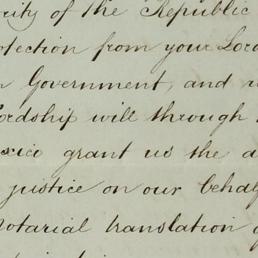 ority of the Republic
otection from your Lord
Government, and
ordship will through
exico grant us the
justice on our behalf
Notarial translation